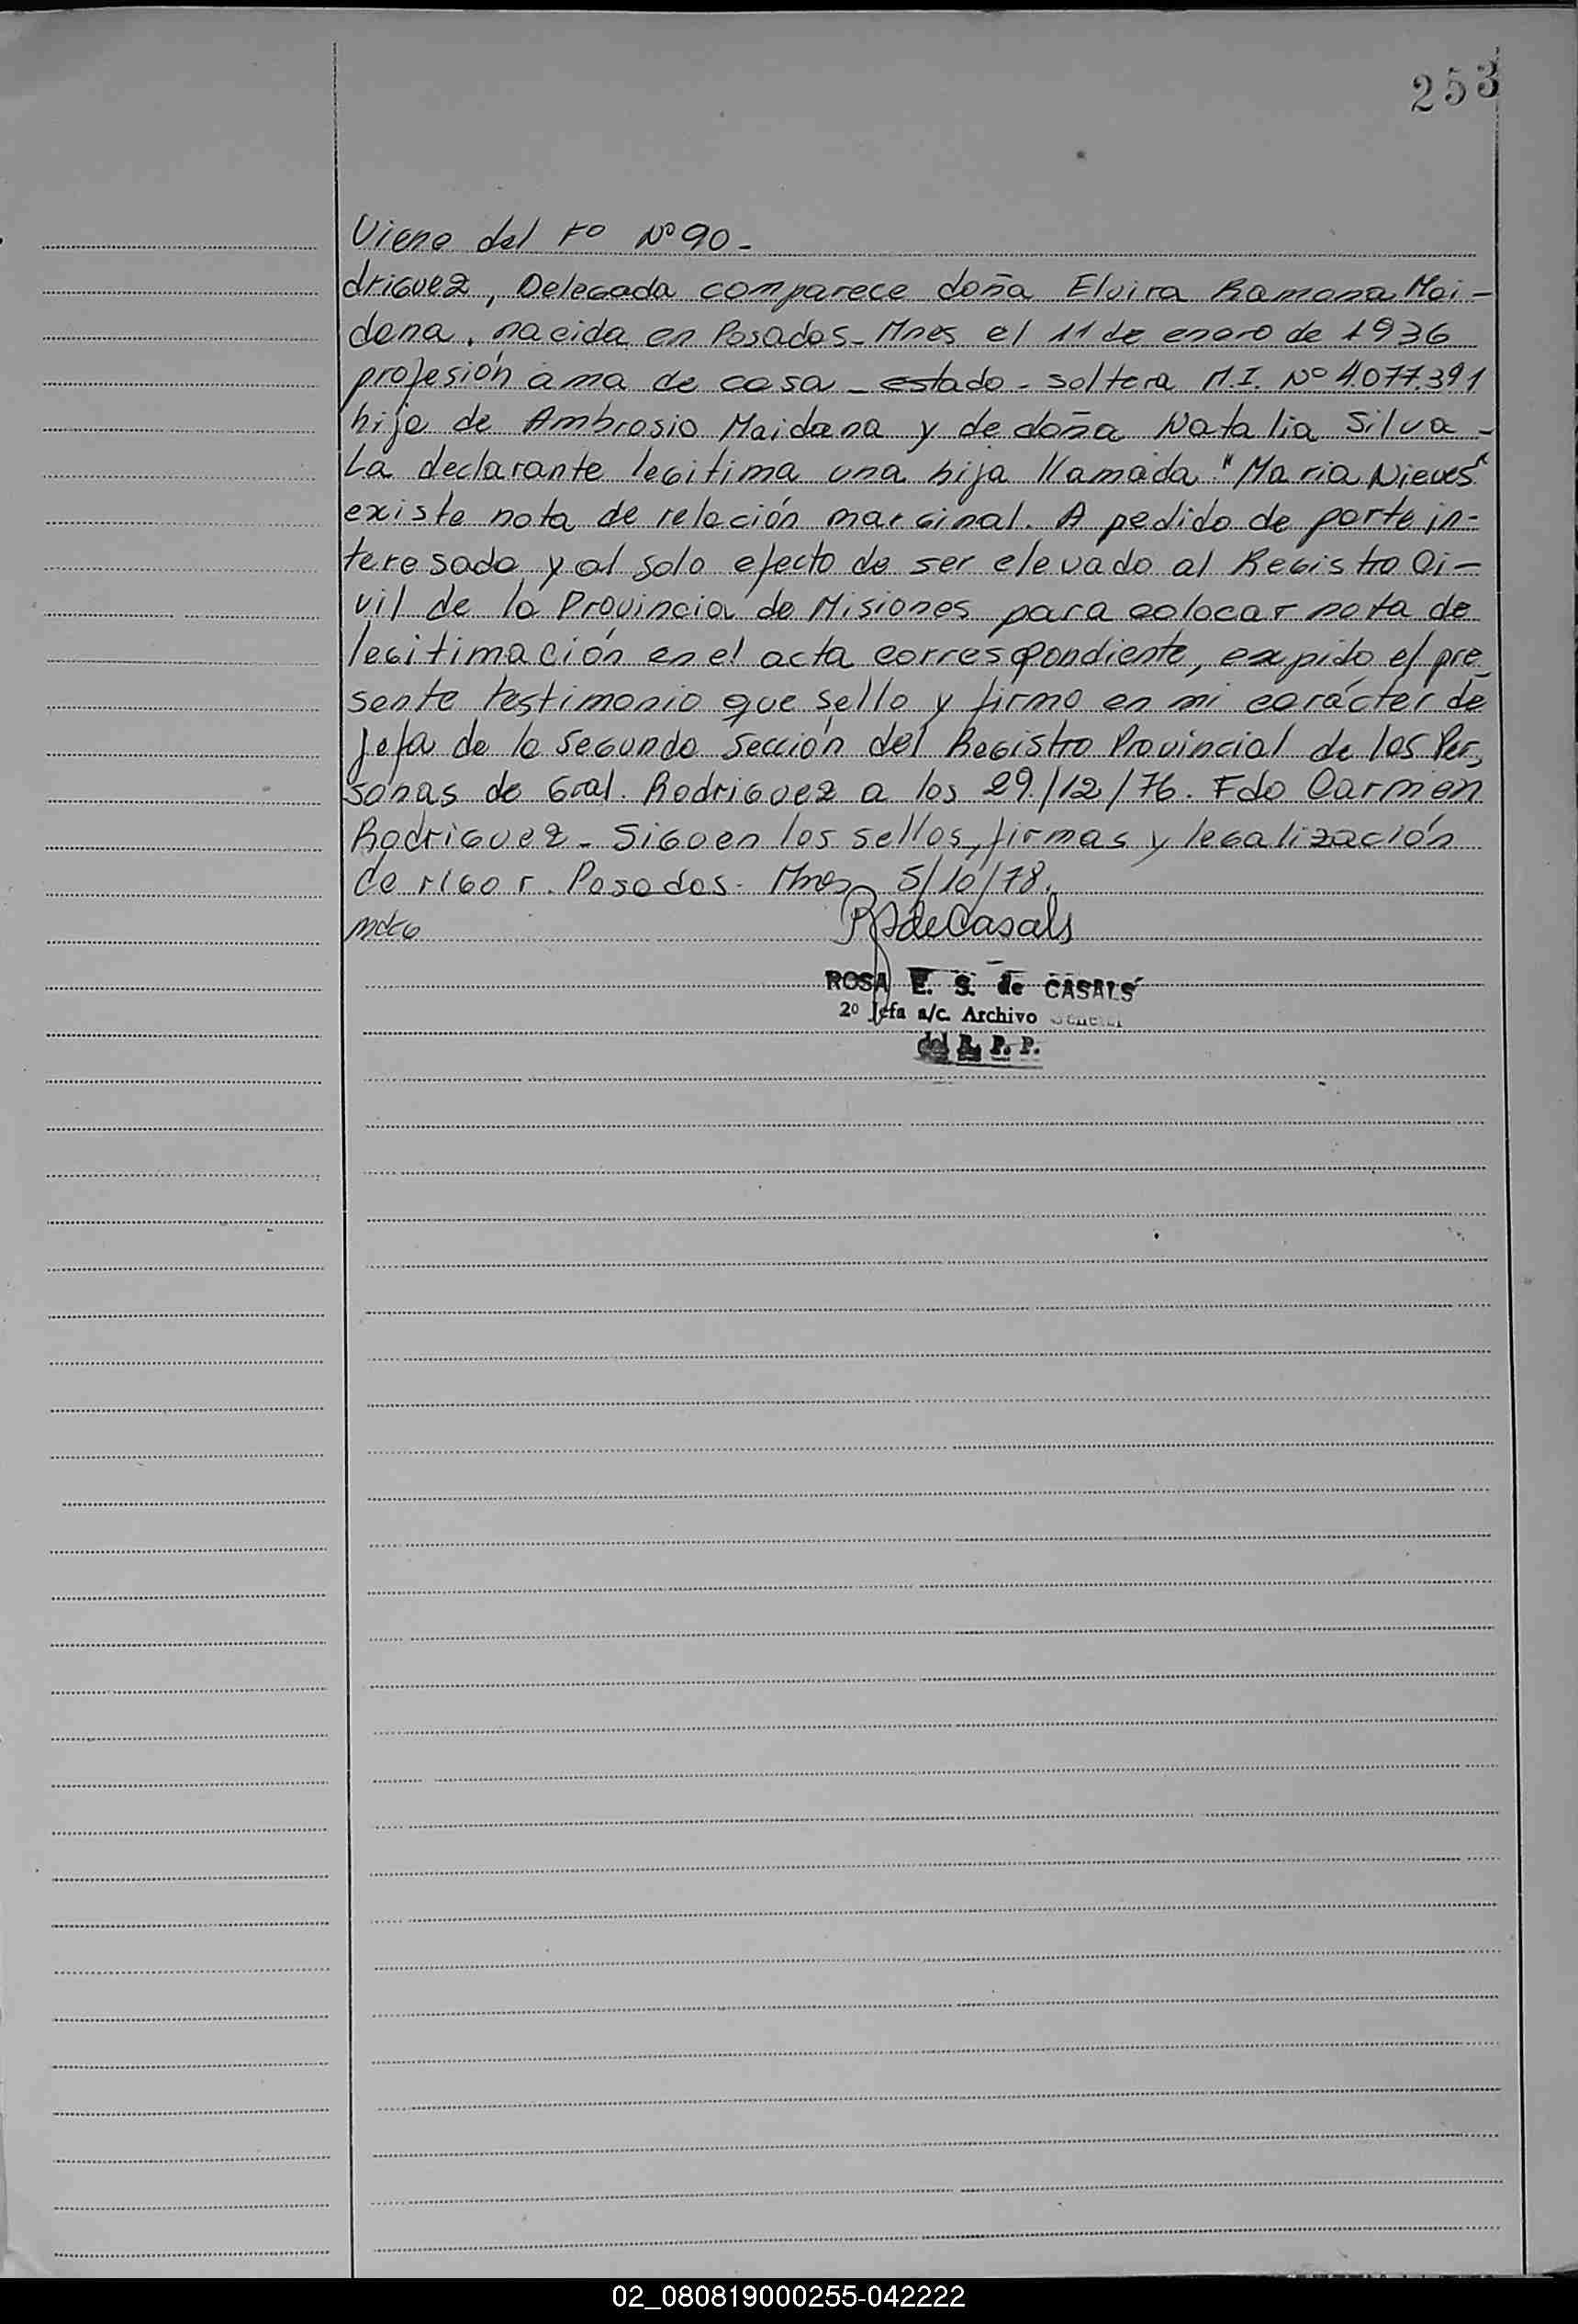 253
Viene del Fº Nº 90-
driguez, Delegada comparece doña Elvira Ramona Mai-
dana, nacida en Posadas-Mnes el 11 de enero de 1936
profesión ama de casa - estado - soltera M.I. Nº 4.077.391
hija de Ambrosio Maidana y de doña Natalia Silva -
La declarante legitima una hija llamada "Maria Nieves"
existe nota de relación marginal. A pedido de parte in-
teresada y al solo efecto de ser elevado al Registro Ci-
vil de la Provincia de Misiones para colocar nota de
legitimación en el acta correspondiente, expido el pre-
sente testimonio que sello y firmo en mi carácter de
Jefa de la Segunda Sección del Registro Provincial de las Per-
sonas de Gral. Rodriguez a los 29/12/76. Fdo Carmen
Rodriguez - Siguen los sellos, firmas y legalización
de rigor. Posadas - Mnes 5/10/78.
RSdeCasals
ROSA E. S. de CASALS
2º Jefa a/c. Archivo General
del R. P. P.
02_080819000255-042222